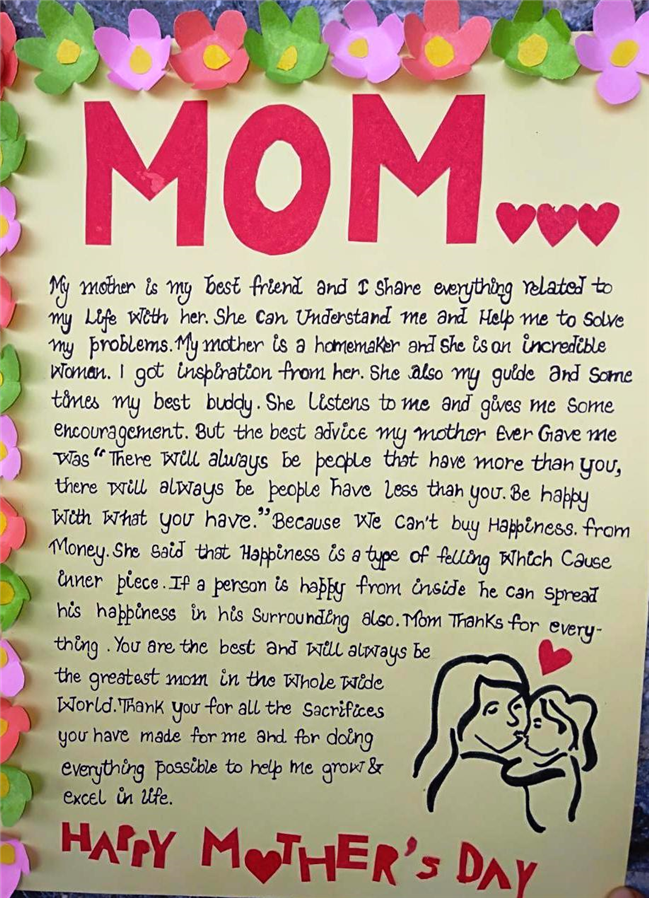 MOM...
My mother is my best friend and I share everything related to
my Life with her. She Can Understand me and Help me to solve
my problems. My mother is a homemaker and she is an incredible
Woman. I got inspiration from her. She also my guide and Some
times my best buddy. She Listens to me and gives me Some
encouragement. But the best advice my mother Ever Gave me
Was "There Will always be people that have more than you,
there will always be people have less than you. Be happy
With What you have." Because We Can't buy Happiness. from
Money. She Said that Happiness is a type of felling Which Cause
inner piece. If a person is happy from inside he can spread
his happiness in his Surrounding also. Mom Thanks for every-
thing. You are the best and Will always be
the greatest mom in the Whole Wide
World. Thank you for all the Sacrifices
you have made for me and for doing
everything possible to help me grow &
excel in life.
HAPPY MOTHER'S DAY